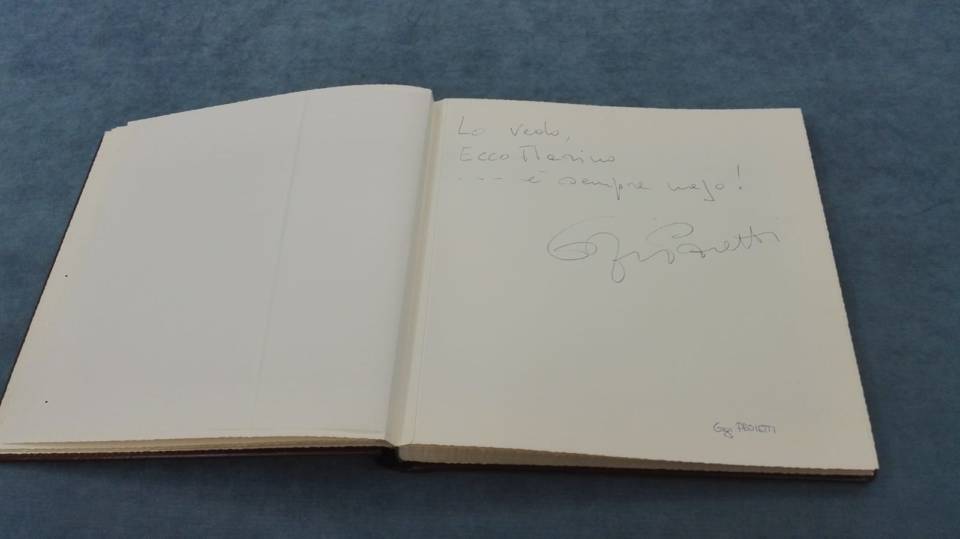 Lo vedo,
Ecco Marino
--- è sempre mejo!
Gigi Proietti
Gigi PROIETTI